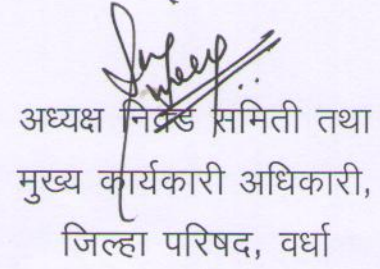 अध्यक्ष निवड समिती तथा
मुख्य कार्यकारी अधिकारी,
जिल्हा परिषद, वर्धा